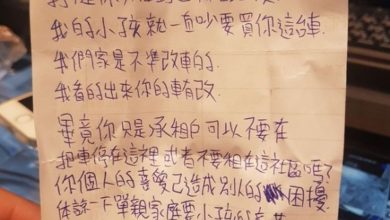 我的小孩就一直吵要買你這台車.
我們家是不準改車的.
我看的出來你的車有改.
畢竟你只是承租戶可以不要在
把車停在這裡或者不要租在這社區嗎?
你個人的喜愛已造成別人的困擾.
体諒一下單親家庭要小孩的